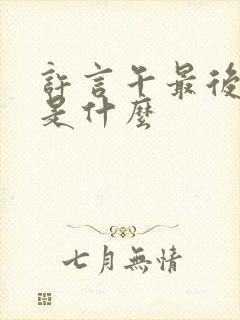 許言午最後
是什麼
七月無情